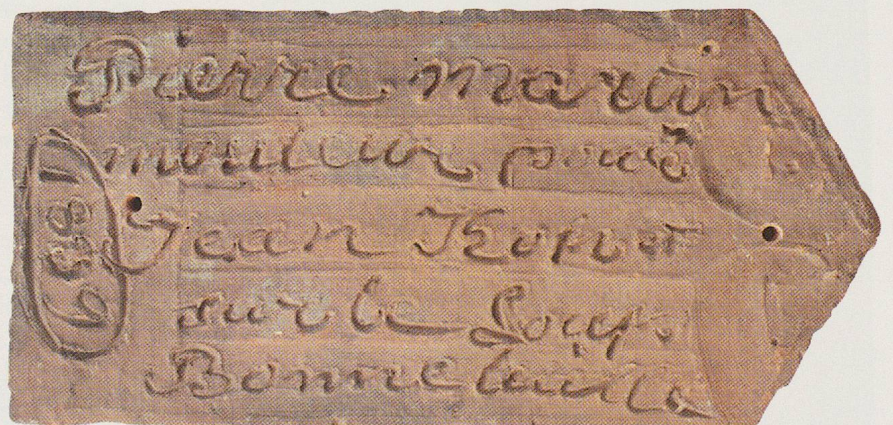 Pierre Martin
mouleur pour
Jean
sur le Loup
Bonne tuille
1889